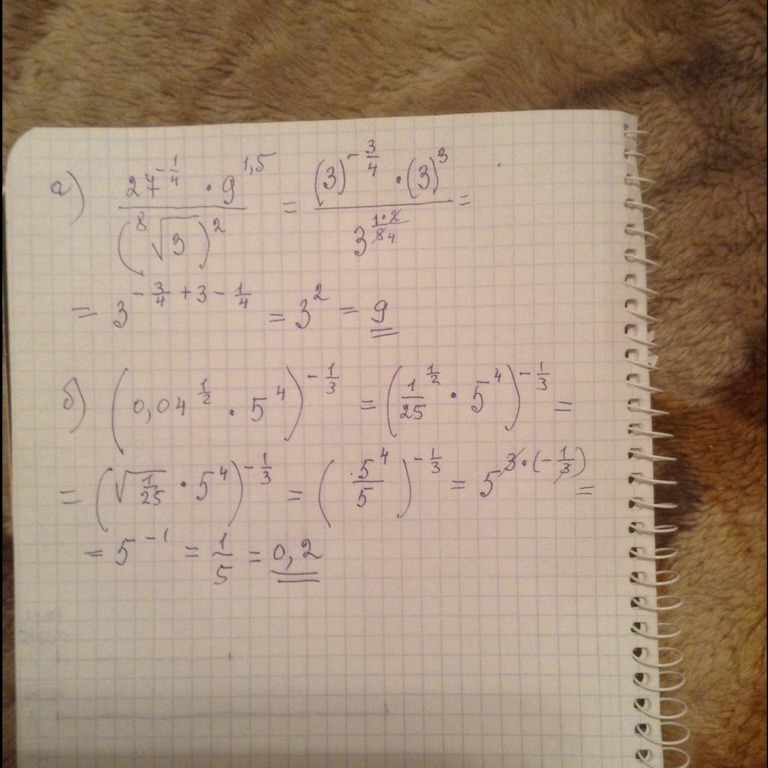 а) \frac{27^{-\frac{1}{4}} \cdot 9^{1,5}}{(\sqrt[8]{3})^2} = \frac{(3)^{-\frac{3}{4}} \cdot (3)^3}{3^{\frac{1 \cdot 2}{8 4}}} =
= 3^{-\frac{3}{4} + 3 - \frac{1}{4}} = 3^2 = 9
б) (0,04^{\frac{1}{2}} \cdot 5^4)^{-\frac{1}{3}} = (\frac{1}{25}^{\frac{1}{2}} \cdot 5^4)^{-\frac{1}{3}} =
= (\sqrt{\frac{1}{25}} \cdot 5^4)^{-\frac{1}{3}} = (\frac{5^4}{5})^{-\frac{1}{3}} = 5^{3 \cdot (-\frac{1}{3})} =
= 5^{-1} = \frac{1}{5} = 0,2